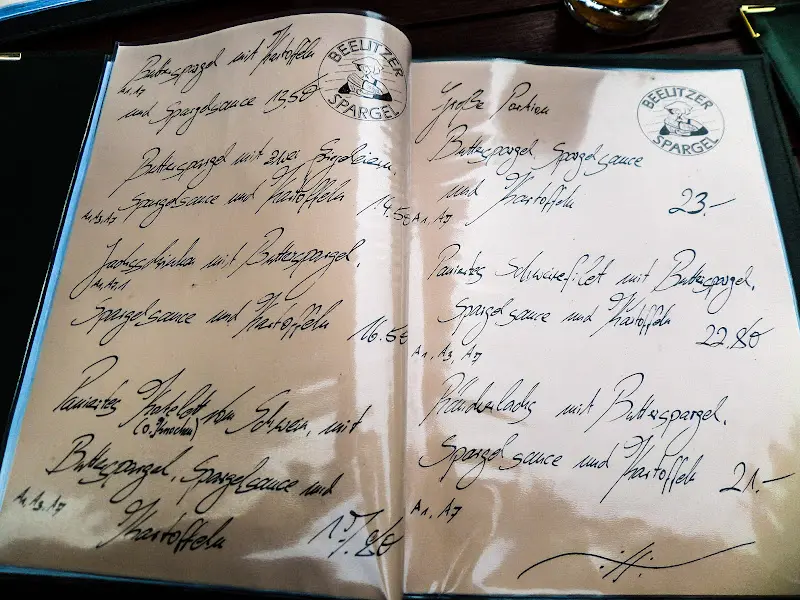 Butterspargel mit Kartoffeln
A1.A7
und Spargelsauce 13,50
BEELITZER
SPARGEL
Butterspargel mit zwei Spiegeleiern,
Spargelsauce und Kartoffeln 14.50
A1.A3.A7
mit Butterspargel,
Spargelsauce und Kartoffeln 16.50
Paniertes Kotelett vom Schwein, mit
(o. Knochen)
Butterspargel, Spargelsauce und
A1.A3.A7
Kartoffeln
Große Portion
BEELITZER
SPARGEL
Butterspargel, Spargelsauce
und Kartoffeln 23.-
A1, A7
Paniertes Schweinefilet mit Butterspargel,
Spargelsauce und Kartoffeln 22.80€
A1, A3, A7
Räucherlachs mit Butterspargel,
Spargelsauce und Kartoffeln 21.-
A1, A7